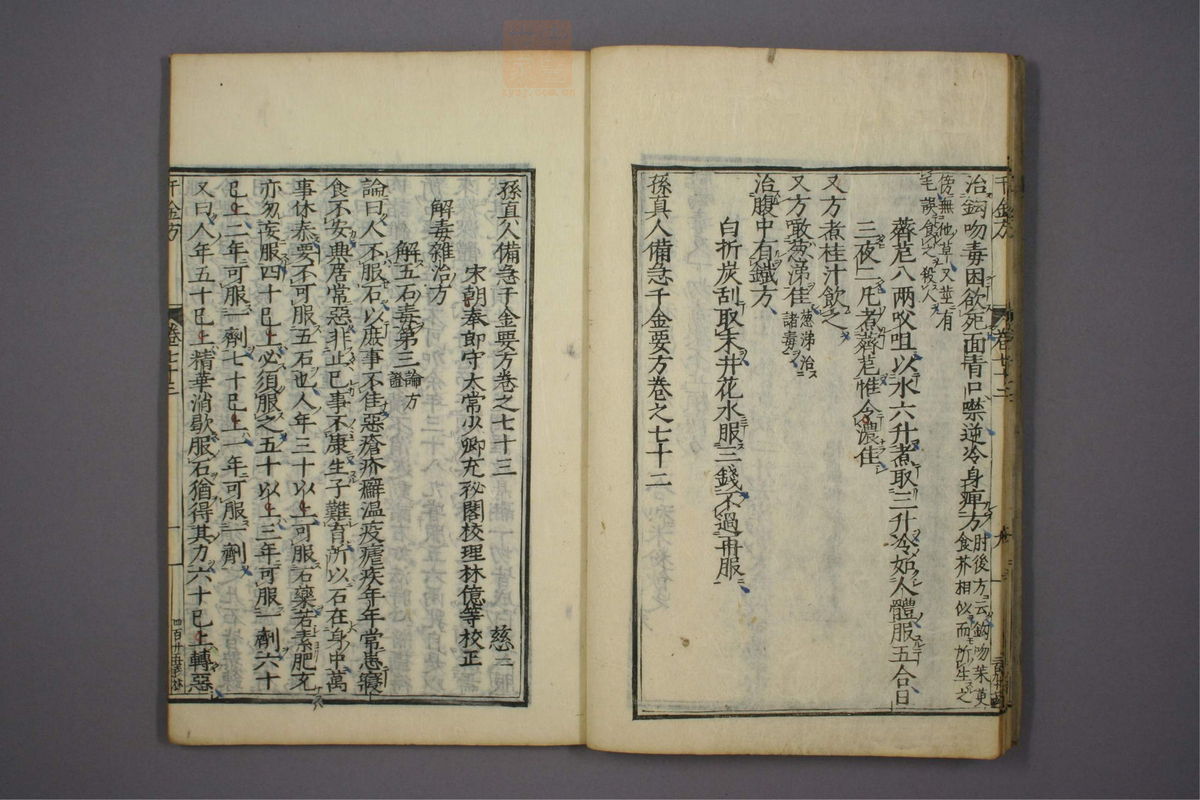 千金方
卷七十二
治鈎吻毒困欲死面青口噤逆冷身痹方肘後方云鈎吻茱茰
食芥相似而所生之
傍無他草又莖有
毛誤食之殺人
薺苨八兩㕮咀以水六升煮取三升冷如人體服五合日
三夜二凡煮薺苨惟令濃佳
又方煮桂汁飲之
又方噉葱涕佳葱涕治
諸毒
治腹中有鐵方
白折炭刮取末井花水服三錢不過再服
孫真人備急千金要方卷之七十二
孫真人備急千金要方卷之七十三 慈二
宋朝奉郎守太常少卿充秘閣校理林億等校正
解毒雜治方
解五石毒第三論方
證
論曰人不服石以庶事不佳惡瘡疥癬温疫瘧疾年年常患寢
食不安興居常惡非止已事不康生子難育所以石在身中萬
事休泰要不可服五石也人年三十以上可服石藥若素肥充
亦勿妄服四十巳上必須服之五十以上三年可服一劑六十
巳上二年可服一劑七十巳上一年可服一劑
又曰人年五十巳上精華消歇服石猶得其力六十巳上轉惡
千金方
卷七十三
一